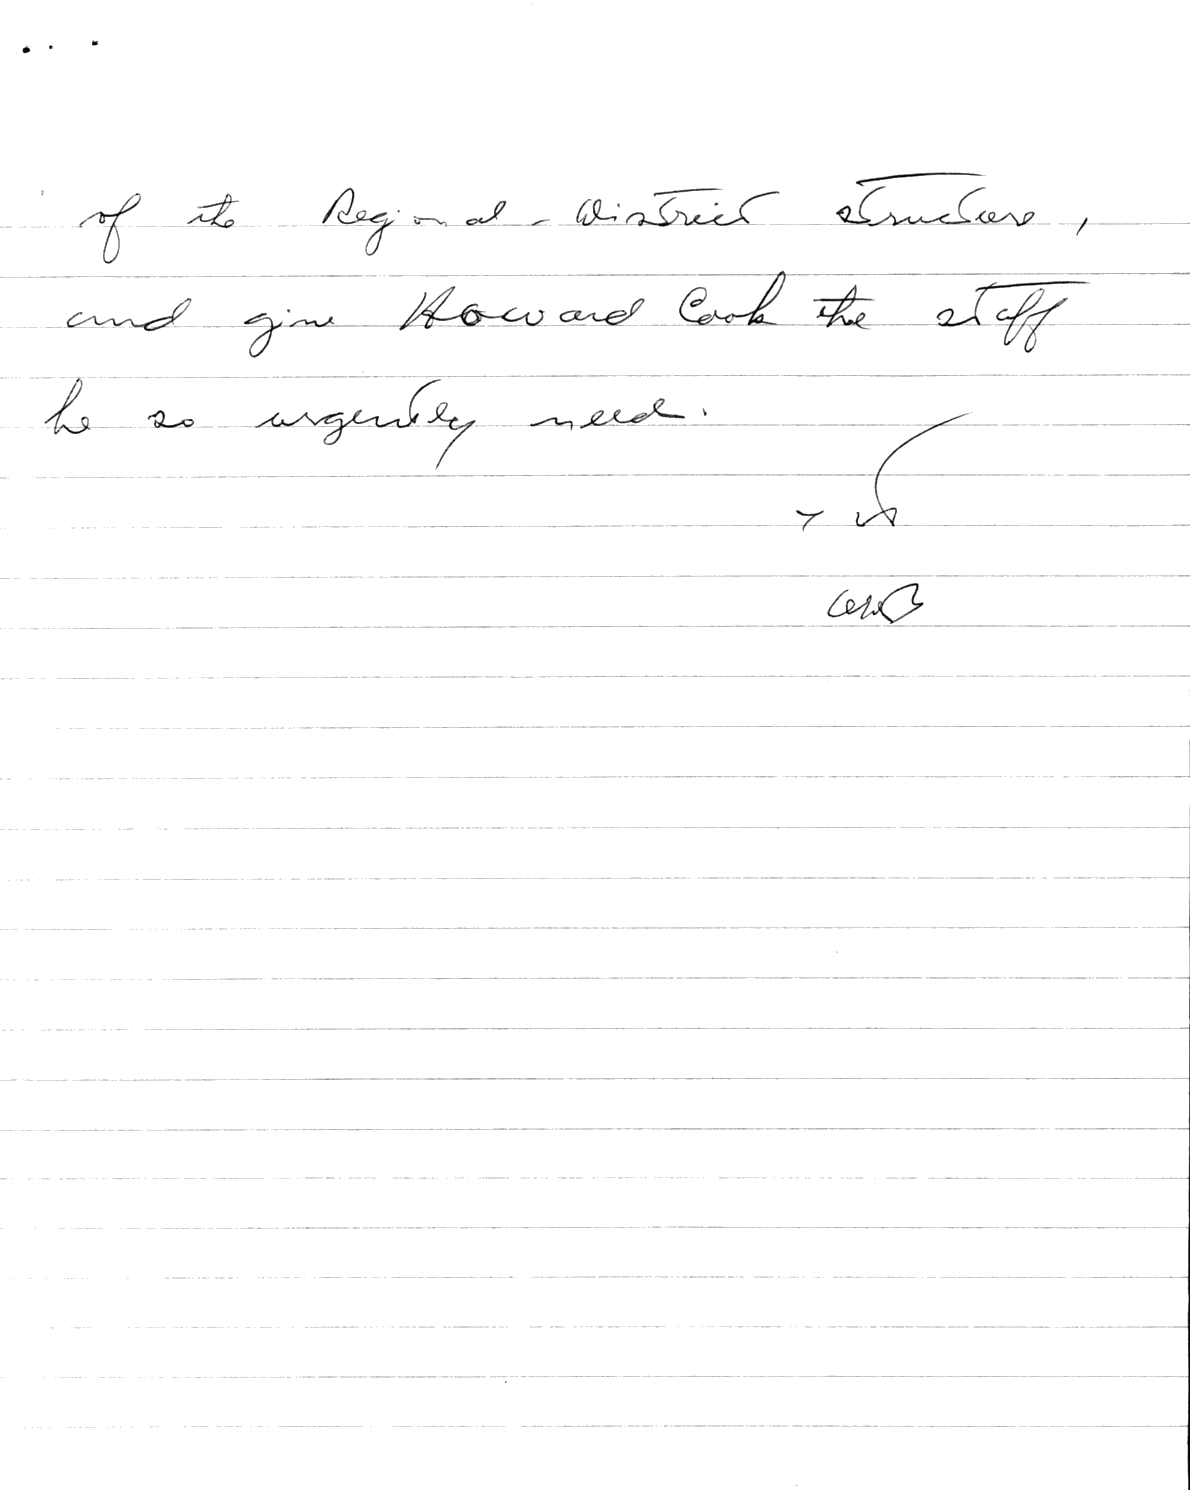 of its Regional - District structure,
and give Howard Cook the staff
he so urgently need.